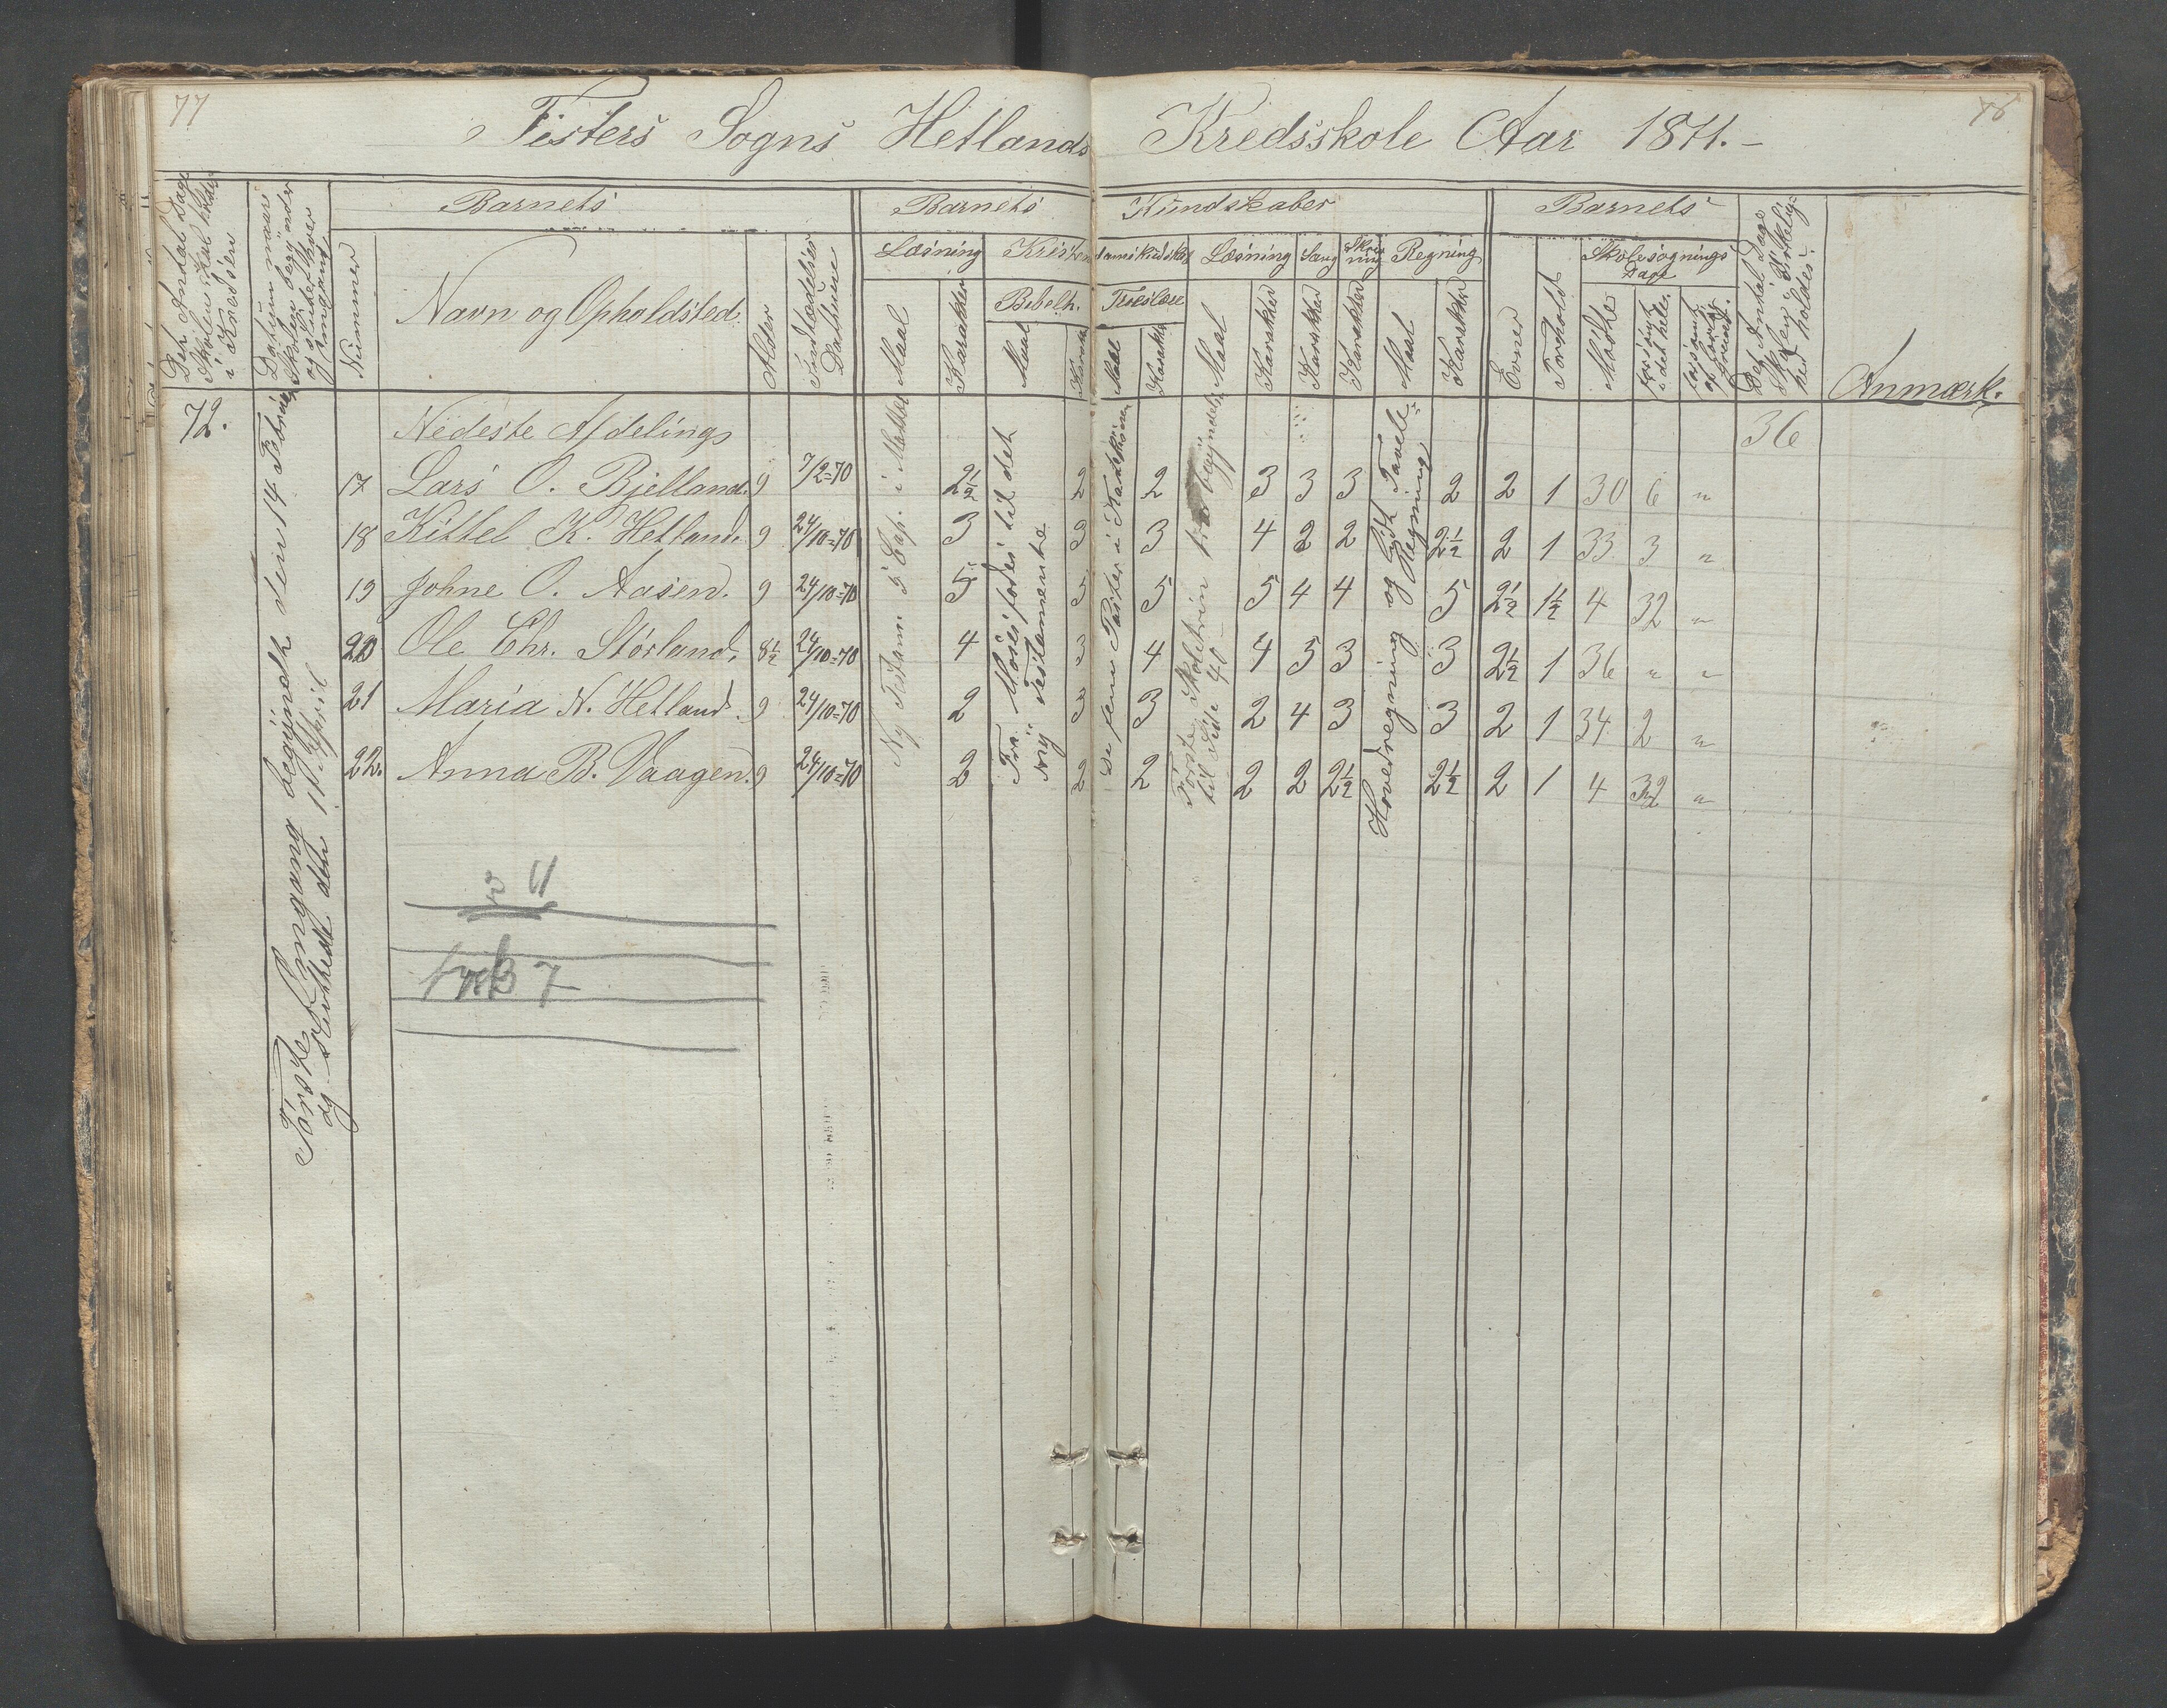 77
78
Fisters Sogns Hetlands Kredsskole Aar 1871.-
Barnets
Barnets Kundskaber
Barnets
Det Antal Dage Skolen skal holdes i Kredsen
Datum naar Skolen begynder og slutter hver Omgang
Nummer
Navn og Opholdsted.
Alder
Indtrædelses Dattum
Læsning
Maal
Karakter
Kristendomskundskab
Bibelh.
Maal
Karakter
Troeslære
Maal
Karakter
Læsning
Maal
Karakter
Sang
Karakter
Skrivning
Karakter
Regning
Maal
Karakter
Evner
Forhold
Skolesøgnings Dage
Mødte
forsømt i det hele.
forsømt af lovlig Grund.
Det Antal Dage Skolen virkelig har holdes.
Anmærk.
72.
Første Omgang begyndt den 14 Februar
og sluttede den 11 April
Nedeste Afdelings
36
17 Lars O. Bjelland. 9 7/2=70 2½ 2 2 3 3 3 2 2 1 30 6 "
18 Kittel K. Hetland. 9 24/10=70 3 3 3 4 2 2 2½ 2 1 33 3 "
19 Johne O. Aasen. 9 24/10=70 5 5 5 5 4 4 5 2½ 1½ 4 32 "
20 Ole Chr. Størland. 8½ 24/10=70 4 3 4 4 5 3 3 2½ 1 36 " "
21 Maria N. Hetland. 9 24/10=70 2 3 3 2 4 3 3 2 1 34 2 "
22. Anna B. Vaagen. 9 24/10=70 2 2 2 2 2 2½ 2½ 2 1 4 32 "
Ny Testam 5 Cap. i Matteo
Fra Moses fødes til det
ny Testamente
De fem Parter i Katekismen
Første Skoletrin fra begyndelse
til Side 40
Hovedregning og lidt Tavle=
Regning
11
7